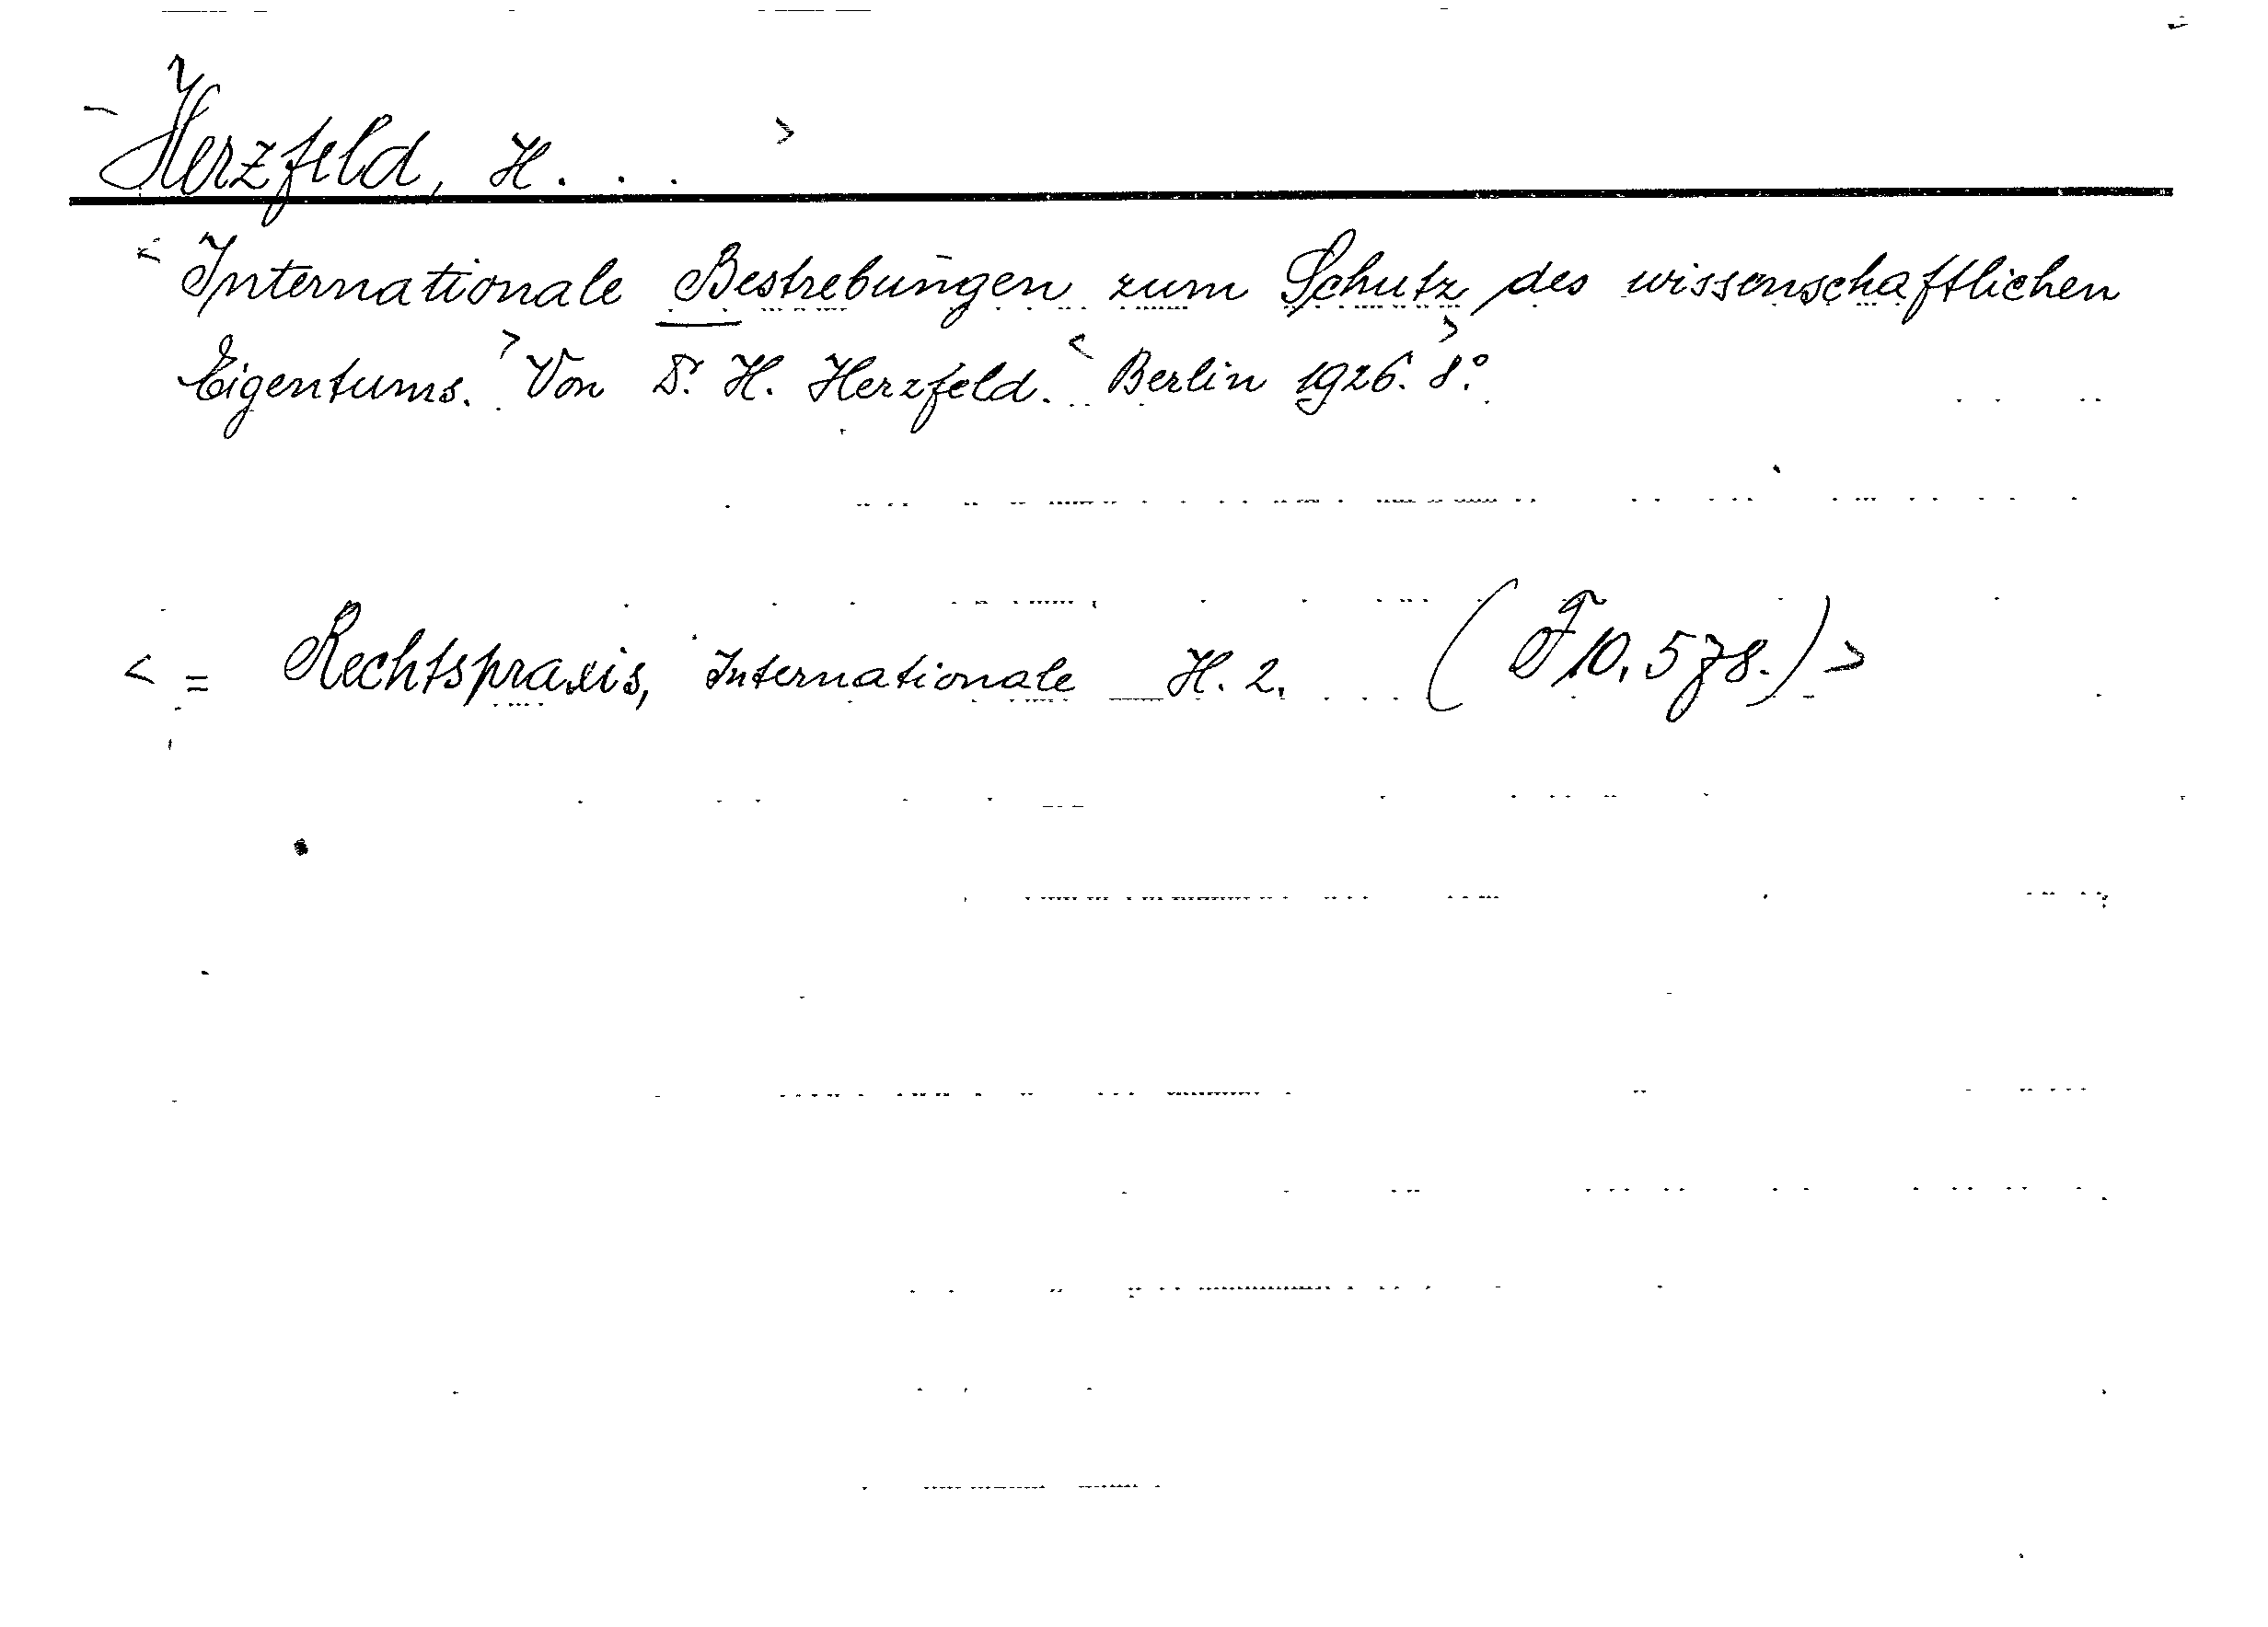 Herzfeld, H. . . >
< Internationale Bestrebungen zum Schutz des wissenschaftlichen
Eigentums. > Von Dr. H. Herzfeld. < Berlin 1926. 8°. >
< = Rechtspraxis, Internationale H. 2. (F 10, 578.) >